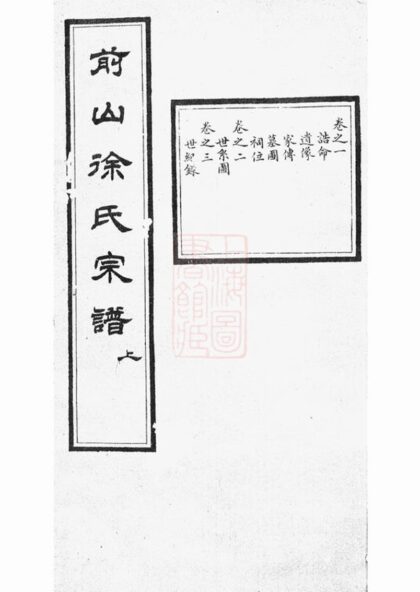 前山徐氏宗譜 上
卷之一
誥命
遺像
家傳
墓圖
祠位
卷之二
世系圖
卷之三
世紀錄
上海圖
書館藏